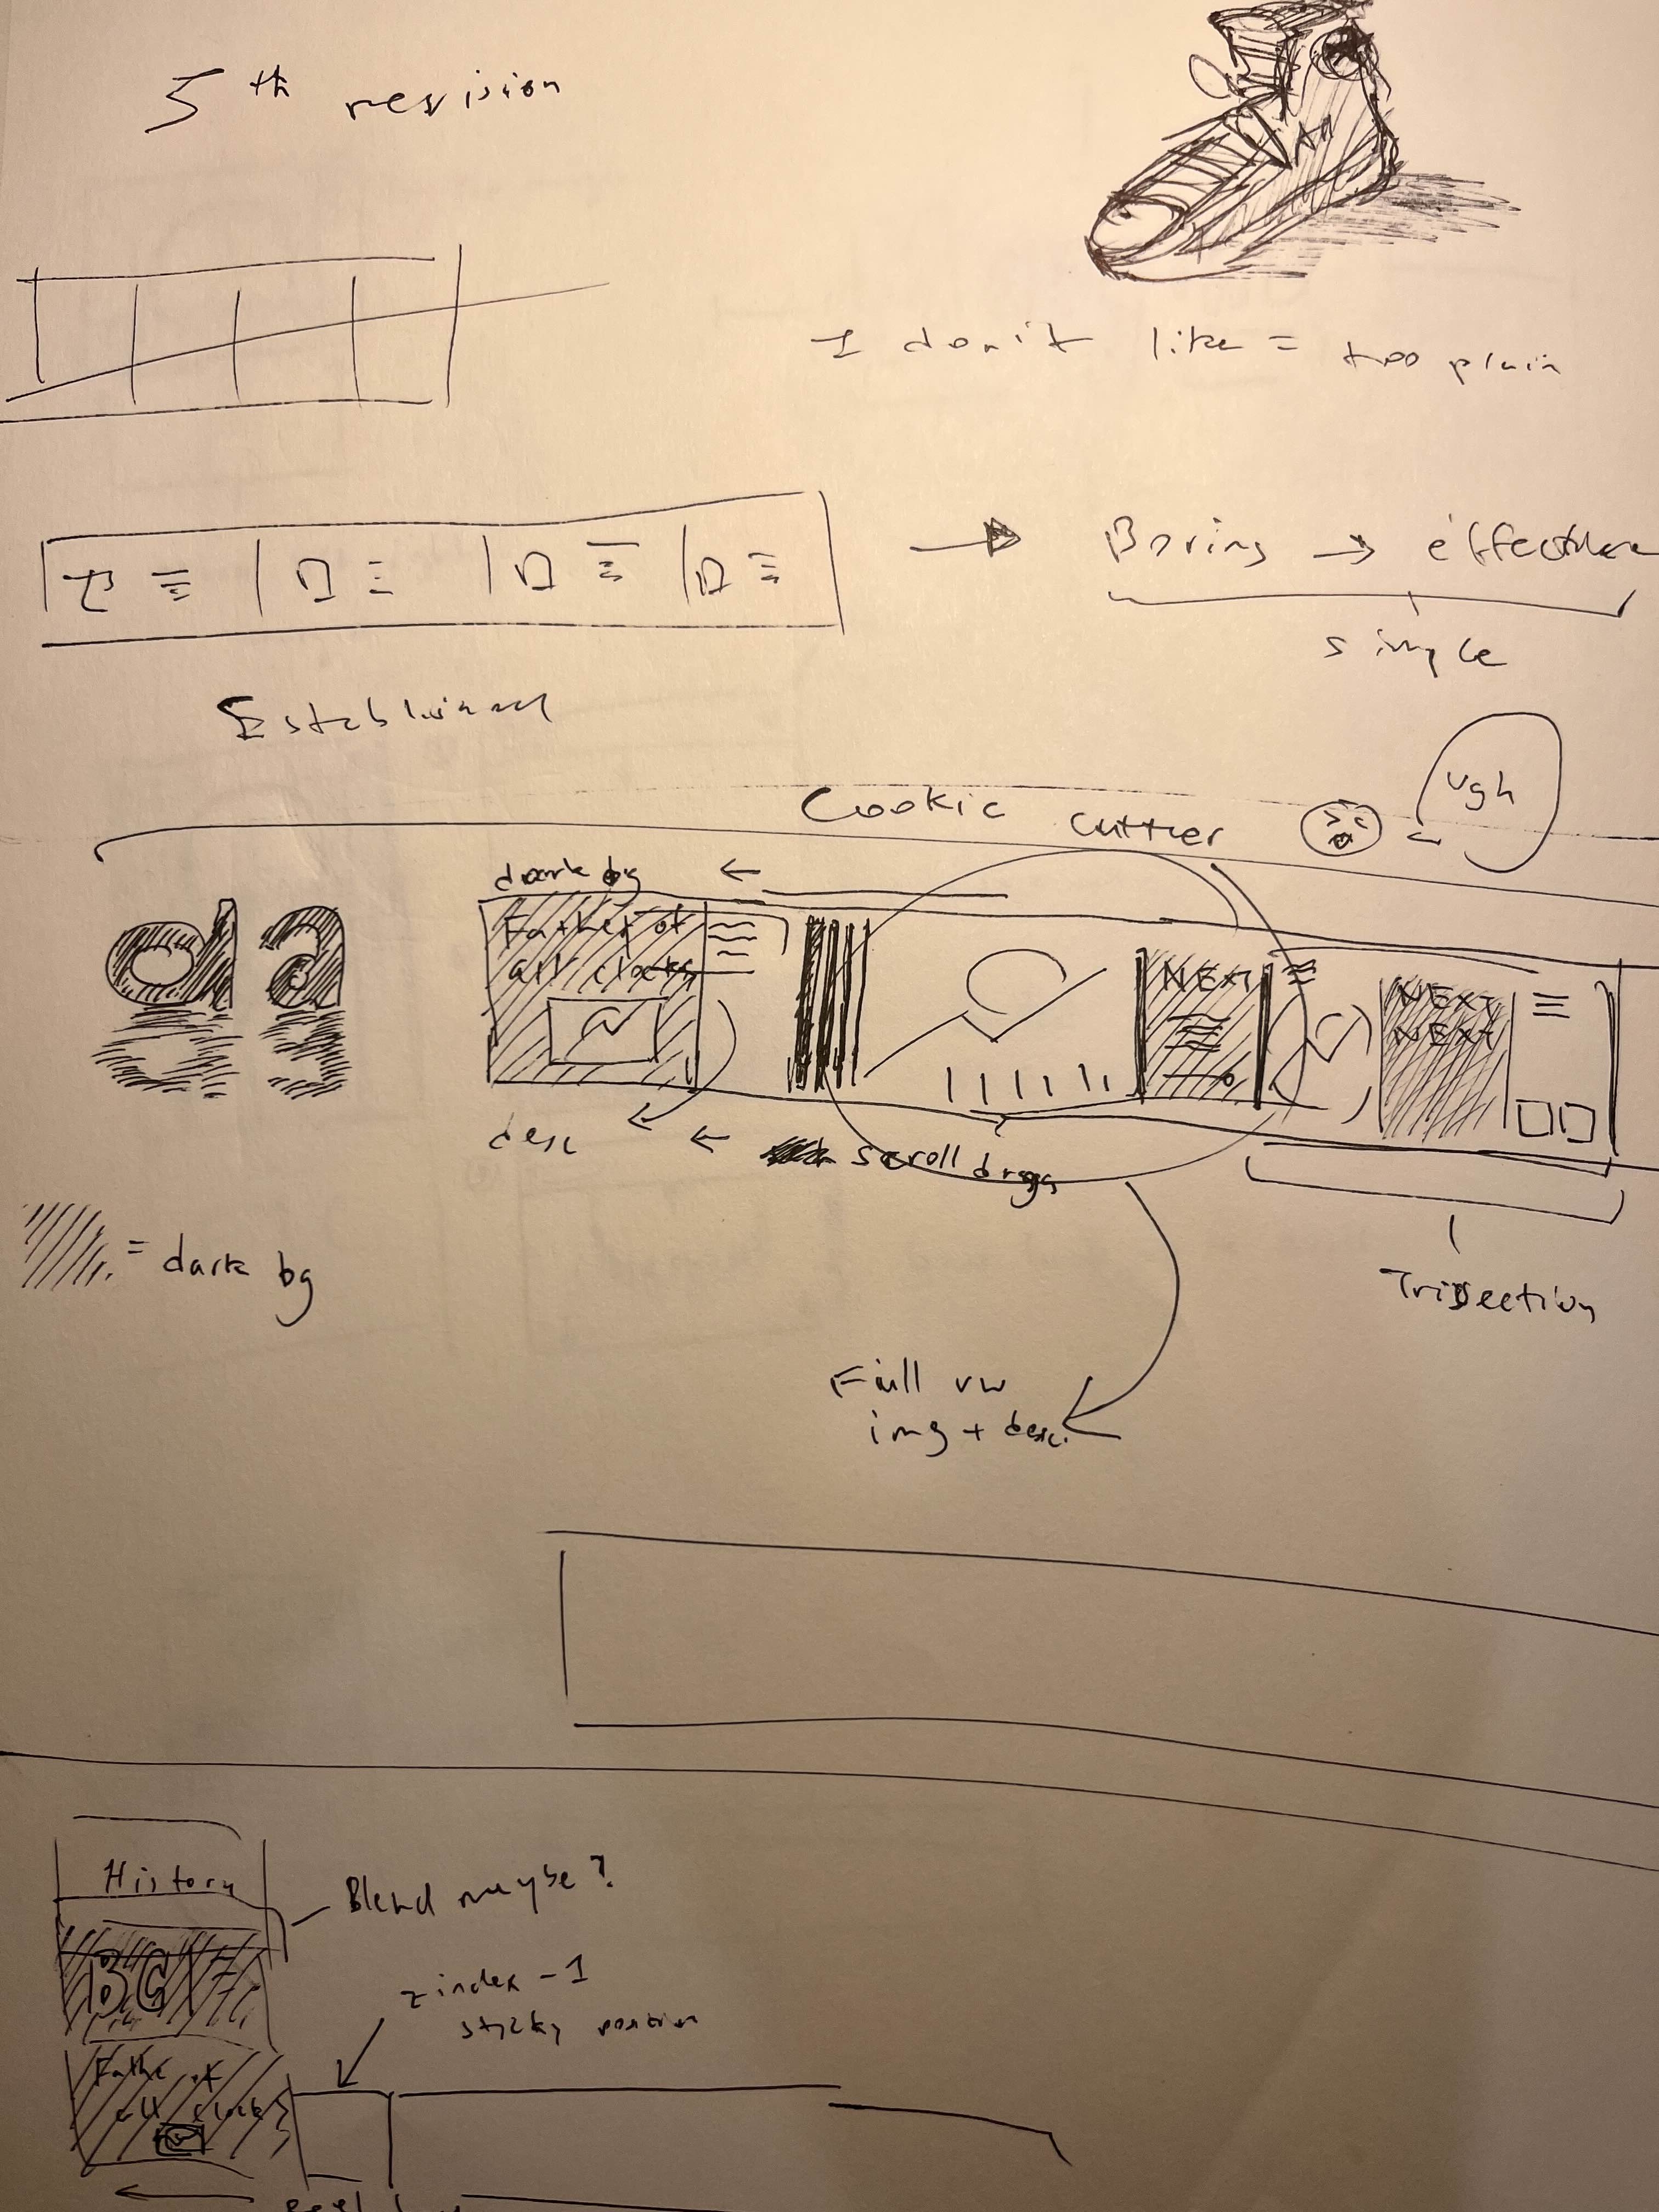 5th revision
I don't like = too plain
Boring → effective
simple
Established
Cookie cutter
ugh
dark bg
Father of
all clocks
NEXT
NEXT
NEXT
da
desc
scroll drags
= dark bg
Trisection
Full vw
img + desc.
History
Blend maybe?
BC
z index -1
sticky position
Father of
all clocks